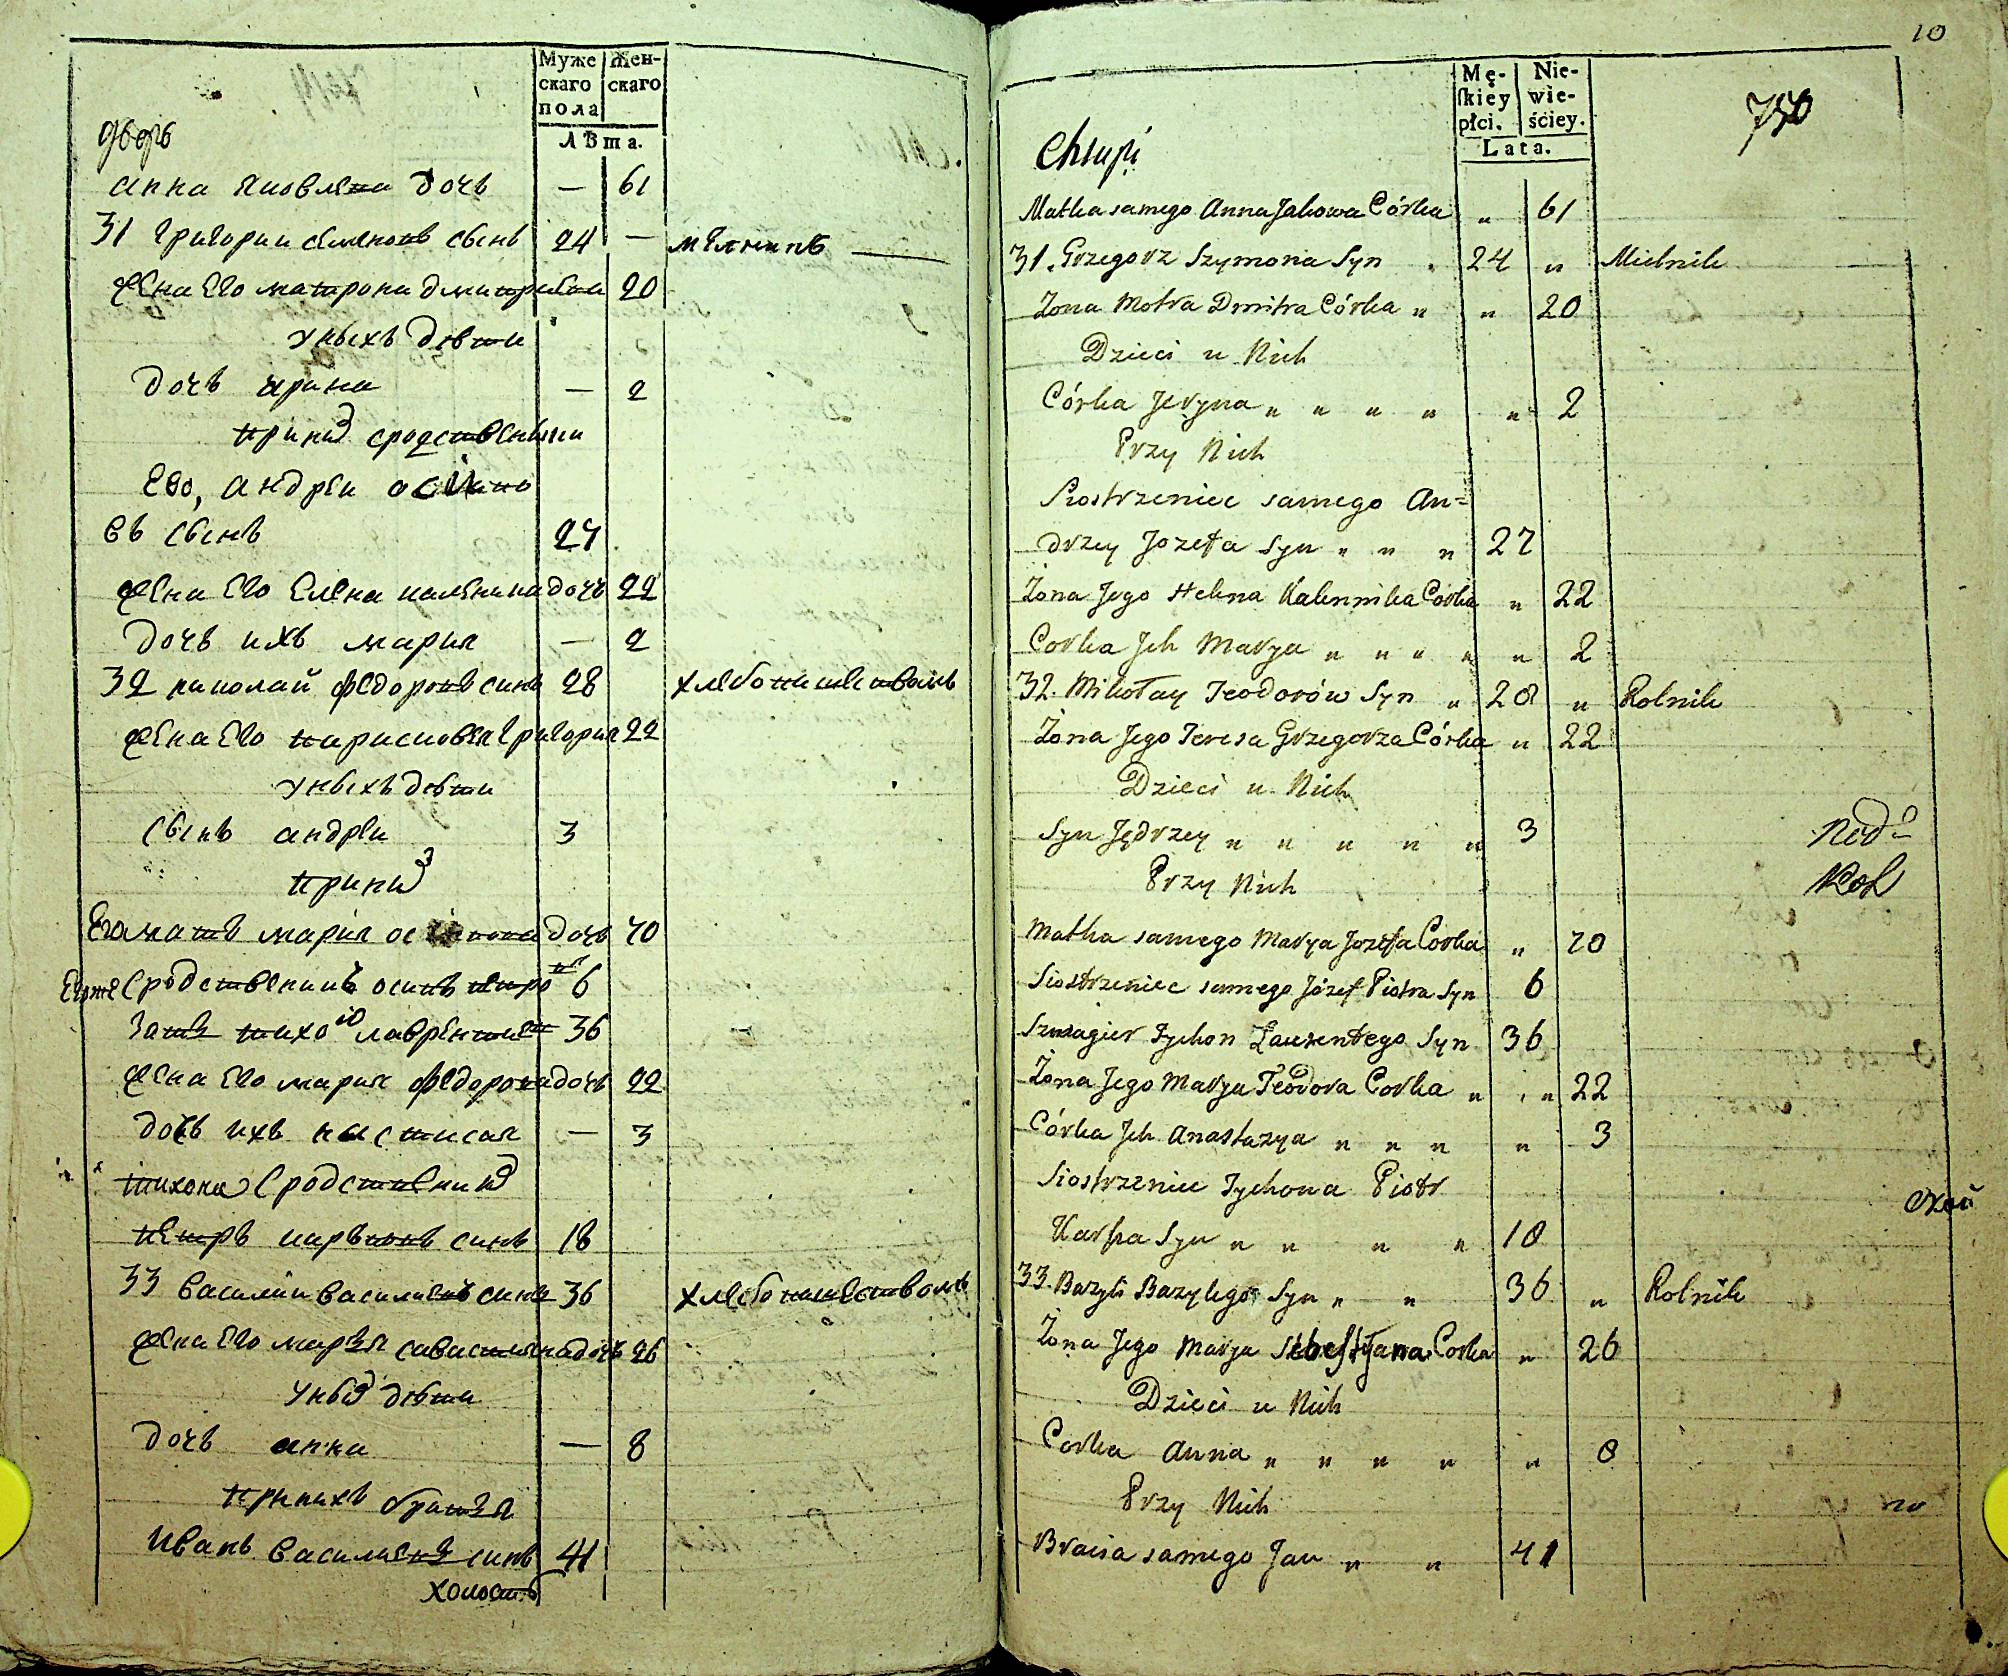 Муже
скаго
пола
Жен-
скаго
Лѣта.
дворъ
анна яковлена дочь — 61
31 григории семеновъ сынъ 24 — мелникъ
жена его матрона дмитриева 20
у ныхъ дѣти
дочь ирина — 2
при ныхъ сродственники
его, андреи осипо
въ сынъ 27
жена его елена каленика дочь 22
дочь ихъ мария — 2
32 николай федоровъ синъ 28 хлебопашествомъ
жена его парасковея григория 22
у ныхъ дѣти
сынъ андреи 3
при ныхъ
его мать мария осипова дочь 70
его же сродственникъ осипъ петро 6
зять тихон лаврентиев 36
жена его мария федорова дочь 22
дочь ихъ настасия — 3
тихона сродственикъ
петръ карповъ синъ 18
33 василий василиевъ синъ 36 хлебопашествомъ
жена его маръя савастиянна дочь 26
у ныхъ дѣти
дочь анна — 8
при нихъ братья
иванъ василиевъ синъ 41
холостъ
10
Mę-
skiey
płci.
Nie-
wie-
ściey.
Lata.
750
Chłupi
Matka samego Anna Jakowa Córka „ 61
31. Grzegorz Szymona Syn „ 24 „ Mielnik
Żona Motra Dmitra Córka „ „ 20
Dzieci u Nich
Córka Jeryna „ „ „ „ „ 2
Przy Nich
Siostrzeniec samego An=
drzey Jozefa Syn „ „ „ 27
Żona Jego Helena Kalennika Corka „ 22
Corka Jch Marya „ „ „ „ „ 2
32. Mikołay Teodorów Syn „ 28 „ Rolnik
Żona Jego Teresa Grzegorza Córka „ 22
Dzieci u Nich
Syn Jędrzey „ „ „ „ „ 3
Przy Nich
Matka samego Marya Jozefa Corka „ 70
Siostrzeniec samego Józef Piotra Syn 6
Szwagier Tychon Laurentego Syn 36
Żona Jego Marya Teodora Corka „ „ 22
Córka Jch Anastazya „ „ „ „ 3
Siostrzeniec Tychona Piotr
Karpa Syn „ „ „ „ 18
33. Bazyli Bazylego Syn „ „ 36 „ Rolnik
Żona Jego Marya Sebestyana Corka „ 26
Dzieci u Nich
Corka Anna „ „ „ „ „ 8
Przy Nich
Bracia samego Jan „ „ 41